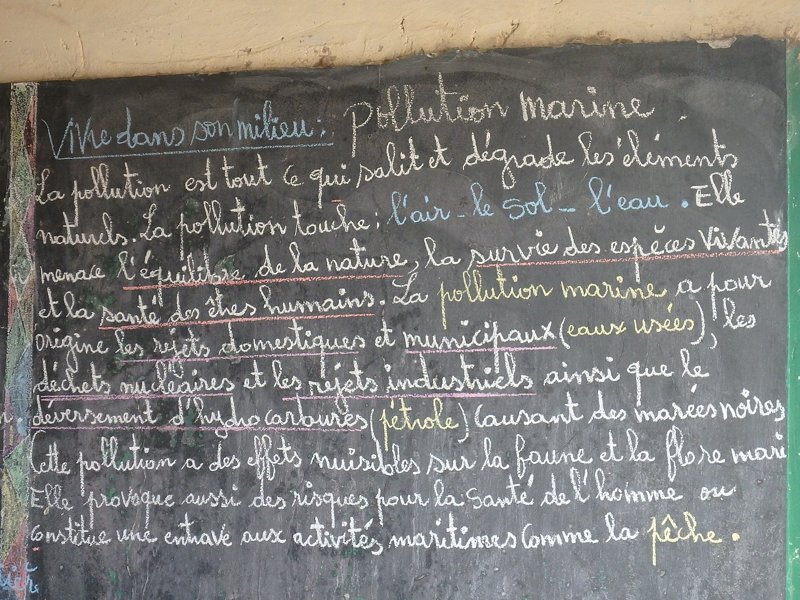 Vivre dans son milieu : Pollution marine
La pollution est tout ce qui salit et dégrade les éléments
naturels. La pollution touche : l'air - le sol - l'eau. Elle
menace l'équilibre de la nature, la survie des espèces vivantes
et la santé des êtres humains. La pollution marine a pour
origine les rejets domestiques et municipaux (eaux usées), les
déchets nucléaires et les rejets industriels ainsi que le
déversement d'hydrocarbures (pétrole) causant des marées noires
Cette pollution a des effets nuisibles sur la faune et la flore mari
Elle provoque aussi des risques pour la santé de l'homme ou
constitue une entrave aux activités maritimes comme la pêche.